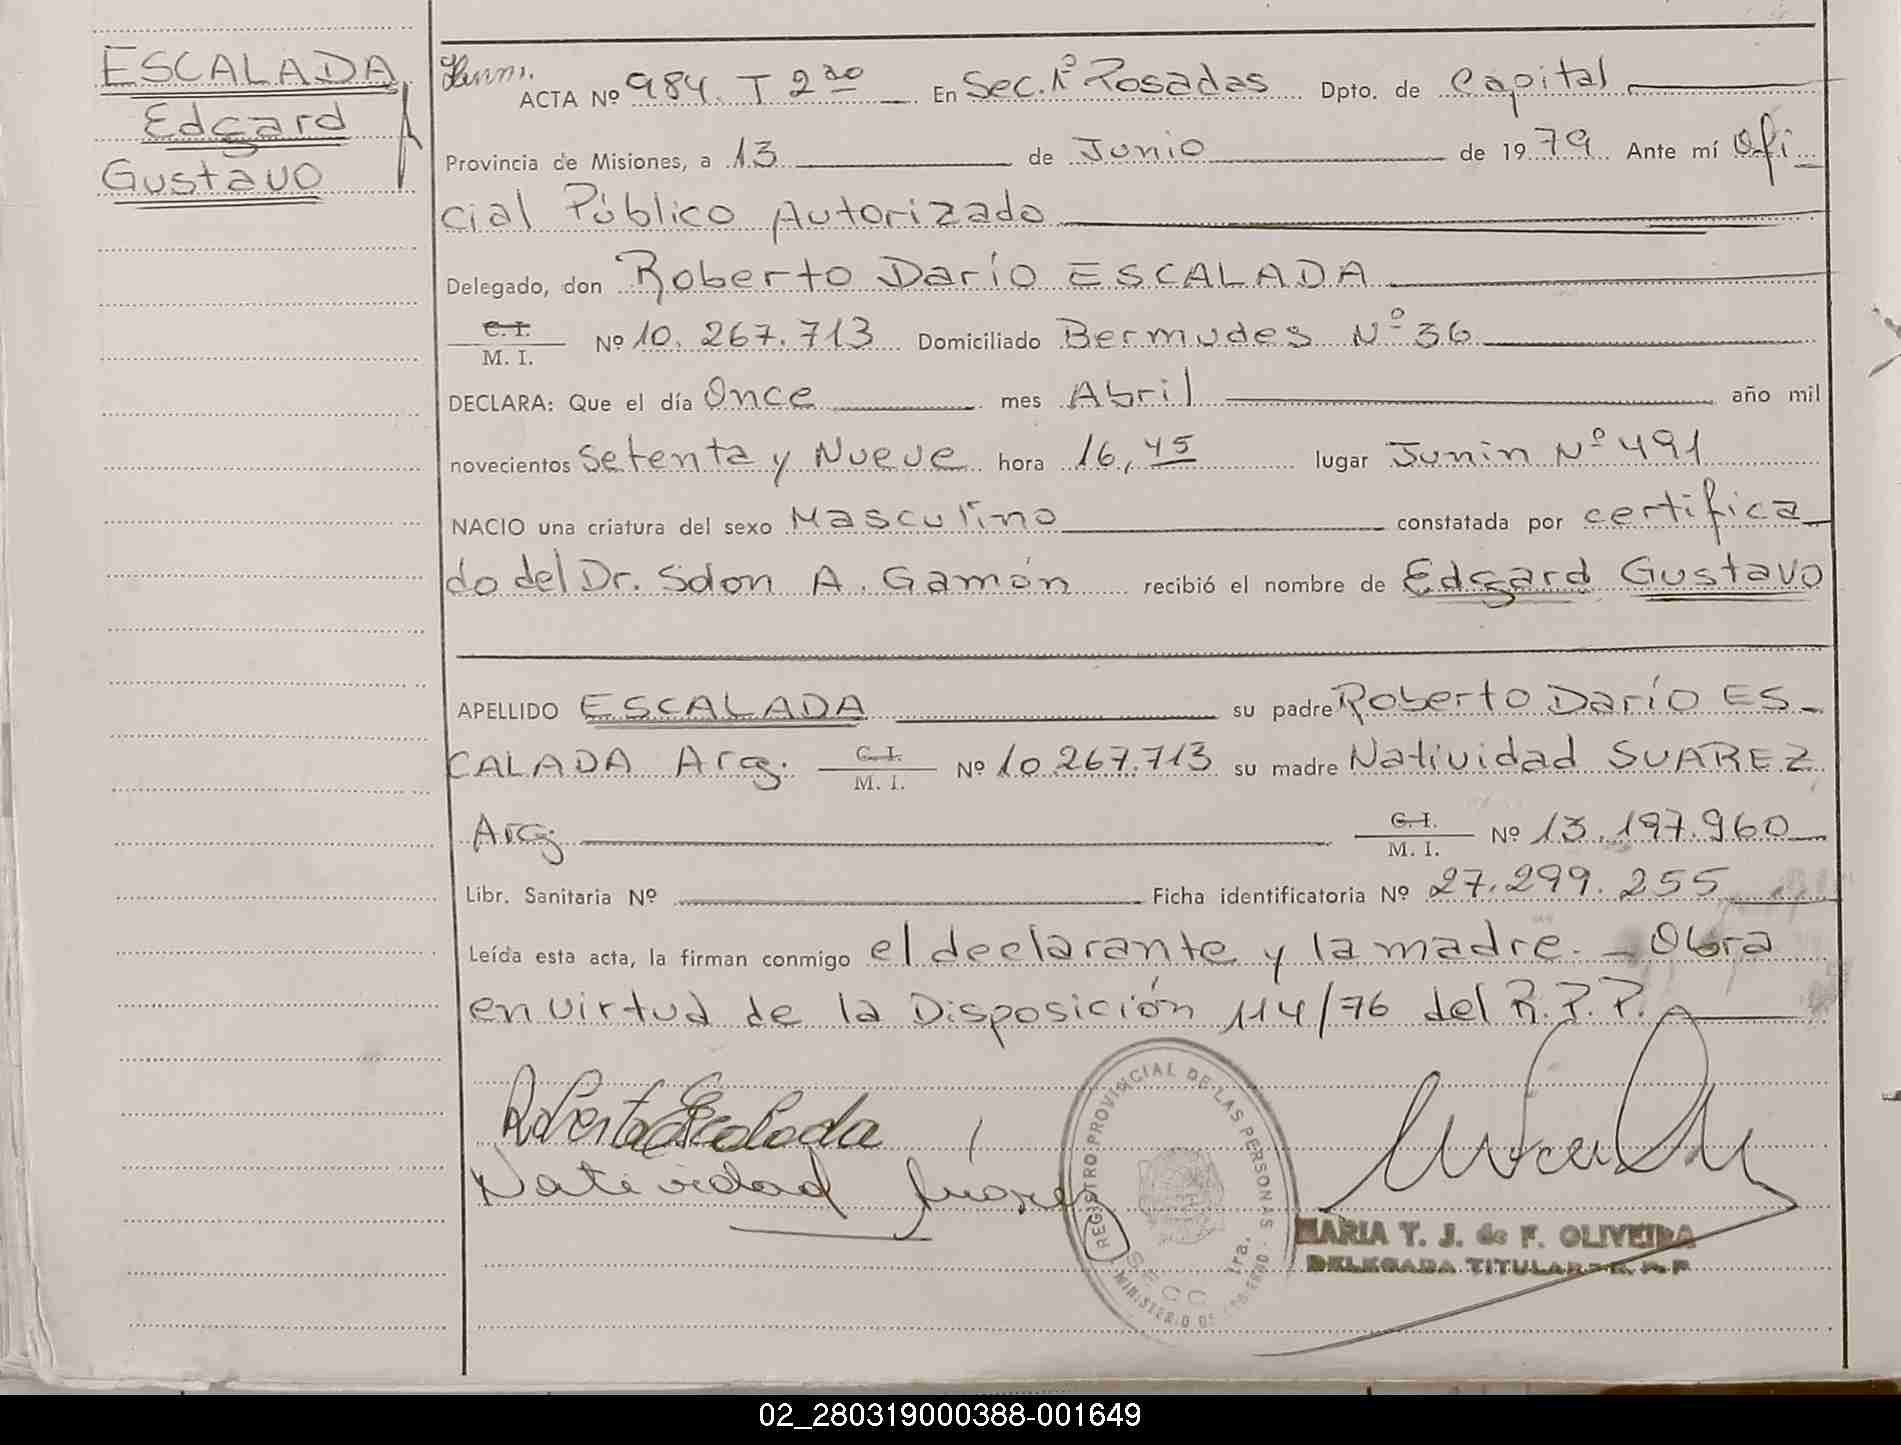 ESCALADA
Edgard
Gustavo
ACTA Nº 984. T 2do En Sec. 1ª Posadas Dpto. de Capital
Provincia de Misiones, a 13 de Junio de 1979 Ante mí Ofi
cial Público Autorizado
Delegado, don Roberto Darío ESCALADA
C. I.
M. I. Nº 10.267.713 Domiciliado Bermudes Nº 36
DECLARA: Que el día Once mes Abril año mil
novecientos setenta y Nueve hora 16,45 lugar Junin Nº 491
NACIO una criatura del sexo Masculino constatada por certifica
do del Dr. Solon A. Gamón recibió el nombre de Edgard Gustavo
APELLIDO ESCALADA su padre Roberto Darío ES-
CALADA Arg. C. I. M. I. Nº 10.267.713 su madre Natividad SUAREZ
Arg. C. I. M. I. Nº 13.197.960
Libr. Sanitaria Nº Ficha identificatoria Nº 27.299.255
Leída esta acta, la firman conmigo el declarante y la madre. - Obra
en virtud de la Disposición 114/76 del R.P.P.
Roberto Escalada
Natividad Suarez
REGISTRO PROVINCIAL DE LAS PERSONAS
SECC 1ra.
MINISTERIO DE GOBIERNO
MARIA T. J. de F. OLIVEIRA
DELEGADA TITULAR - R. P. P.
02_280319000388-001649